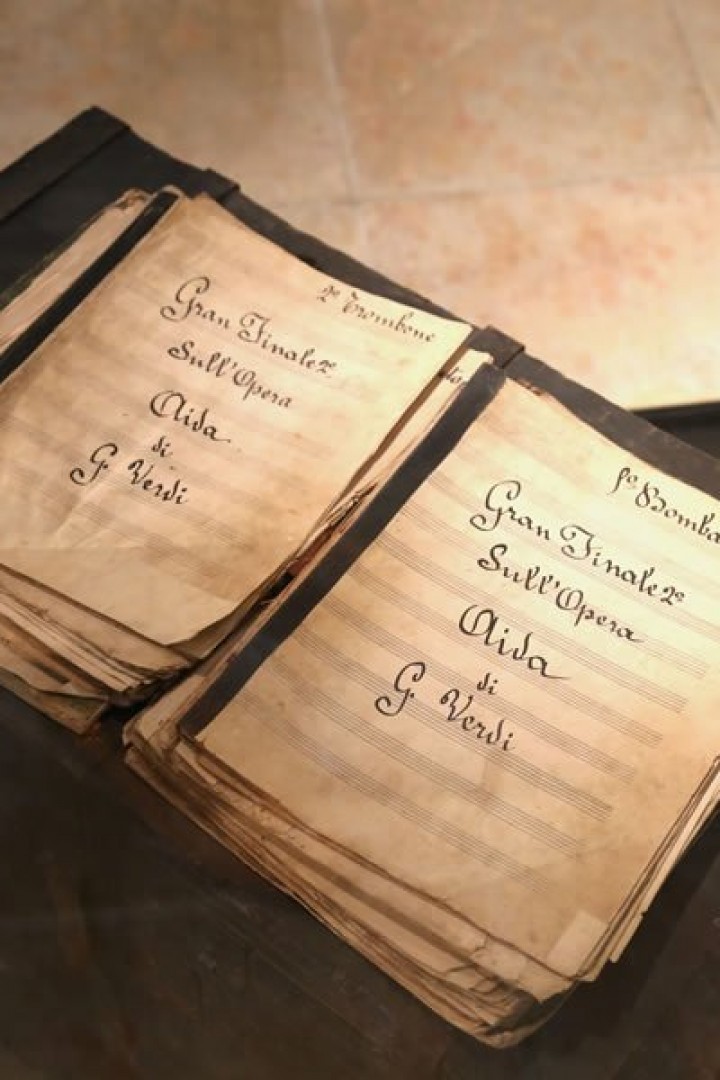 2º Trombone
Gran Finale 2º
Sull'Opera
Aida
di
G. Verdi
1º Bomba
Gran Finale 2º
Sull'Opera
Aida
di
G. Verdi